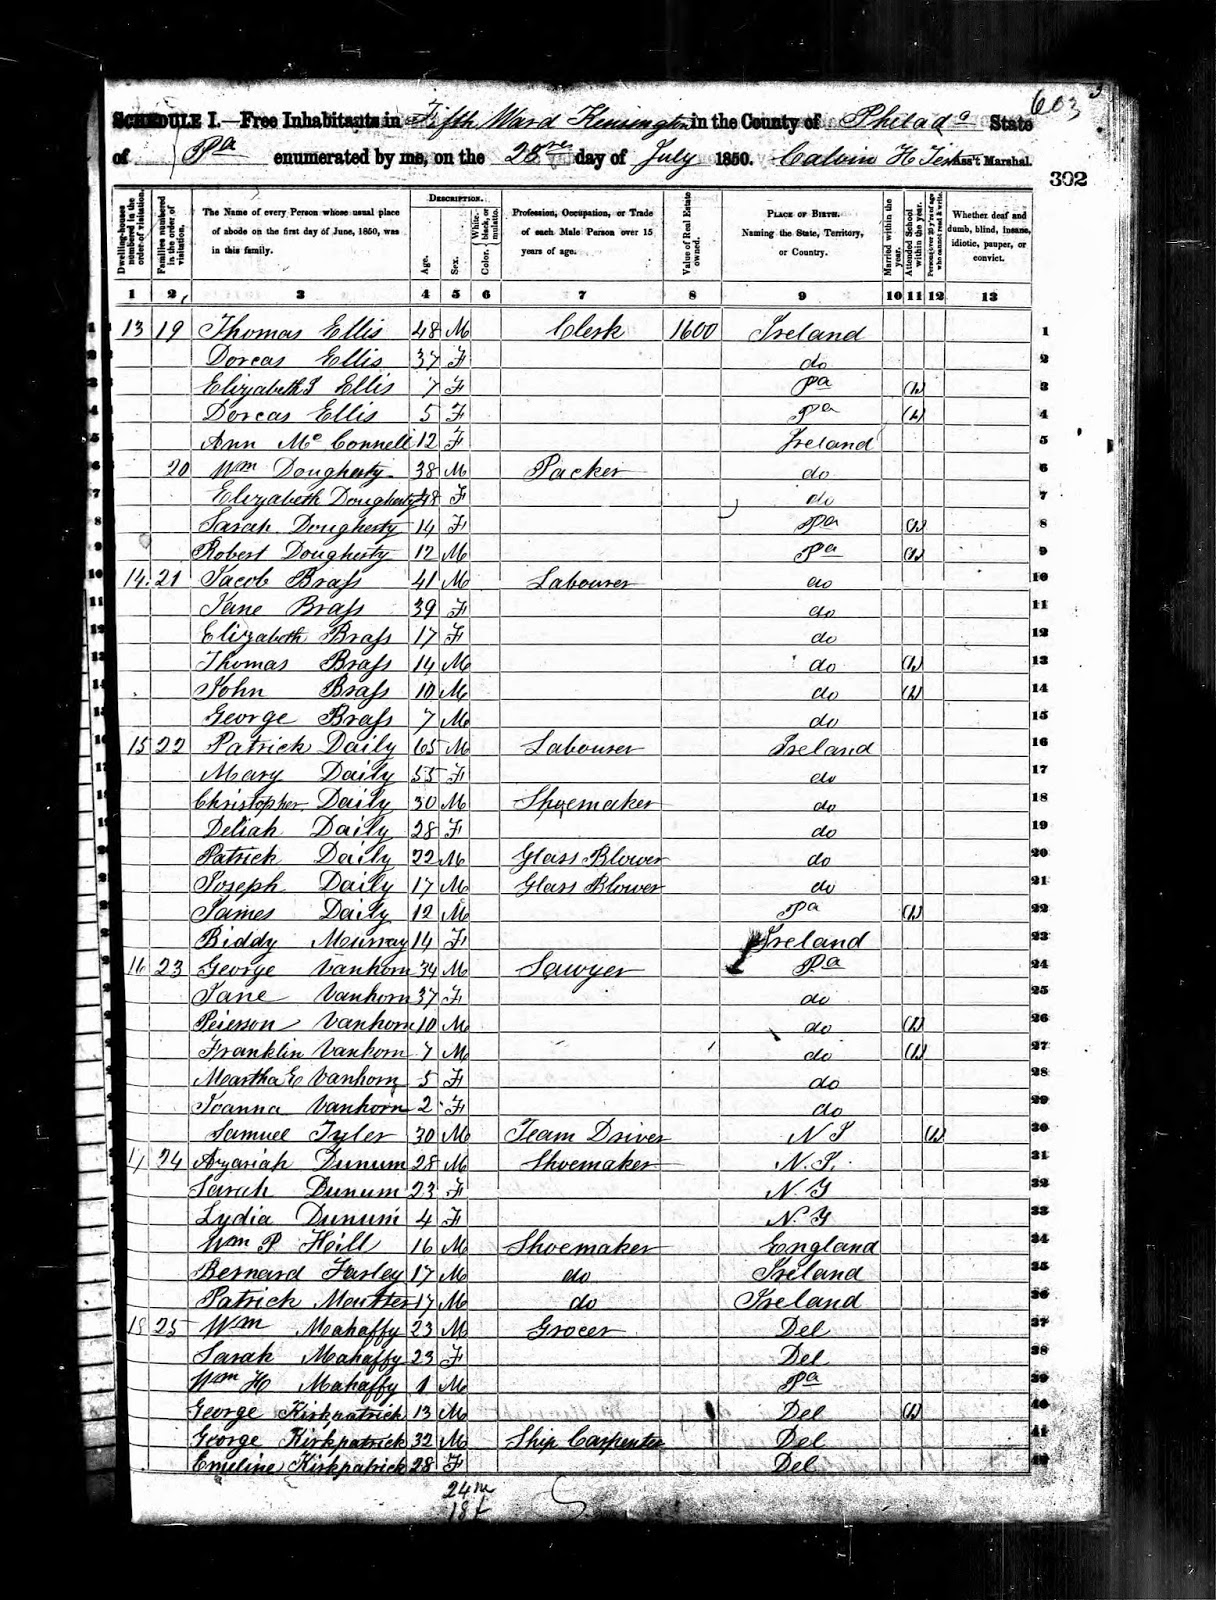 603
SCHEDULE I.—Free Inhabitants in Fifth Ward Kensington in the County of Philada State
of Pa enumerated by me, on the day of July 1850. Calvin H Ass't Marshal.
302
Dwelling-houses numbered in the order of visitation.
Families numbered in the order of visitation.
The Name of every Person whose usual place of abode on the first day of June, 1850, was in this family.
DESCRIPTION.
Age.
Sex.
Color, White, black, or mulatto.
Profession, Occupation, or Trade of each Male Person over 15 years of age.
Value of Real Estate owned.
PLACE OF BIRTH. Naming the State, Territory, or Country.
Married within the year.
Attended School within the year.
Persons over 20 y'rs of age who cannot read & write.
Whether deaf and dumb, blind, insane, idiotic, pauper, or convict.
1 2 3 4 5 6 7 8 9 10 11 12 13
1 13 19 Thomas Ellis 48 M Clerk 1600 Ireland 1
2 Dorcas Ellis 37 F do 2
3 Elizabeth S Ellis 7 F Pa 3
4 Dorcas Ellis 5 F Pa 4
5 Ann Mc Connell 12 F Ireland 5
6 20 Wm Dougherty 38 M Packer do 6
7 Elizabeth Dougherty 48 F do 7
8 Sarah Dougherty 14 F Pa 8
9 Robert Dougherty 12 M Pa 9
10 14 21 Jacob Brass 41 M Labourer do 10
11 Jane Brass 39 F do 11
12 Elizabeth Brass 17 F do 12
13 Thomas Brass 14 M do 13
14 John Brass 10 M do 14
15 George Brass 7 M do 15
16 15 22 Patrick Daily 65 M Labourer Ireland 16
17 Mary Daily 55 F do 17
18 Christopher Daily 30 M Shoemaker do 18
19 Deliah Daily 28 F do 19
20 Patrick Daily 22 M Glass Blower do 20
21 Joseph Daily 17 M Glass Blower do 21
22 James Daily 12 M Pa 22
23 Biddy Murray 14 F Ireland 23
24 16 23 George Vanhorn 34 M Sawyer Pa 24
25 Jane Vanhorn 37 F do 25
26 Peierson Vanhorn 10 M do 26
27 Franklin Vanhorn 7 M do 27
28 Martha E Vanhorn 5 F do 28
29 Joanna Vanhorn 2 F do 29
30 Samuel Tyler 30 M Team Driver N J 30
31 17 24 Azariah Dunum 28 M Shoemaker N. J. 31
32 Sarah Dunum 23 F N. J 32
33 Lydia Dunum 4 F N. J 33
34 Wm P Hoill 16 M Shoemaker England 34
35 Bernard Farley 17 M do Ireland 35
36 Patrick 17 M do Ireland 36
37 18 25 Wm Mahaffy 23 M Grocer Del 37
38 Sarah Mahaffy 23 F Del 38
39 Wm H Mahaffy 1 M Pa 39
40 George Kirkpatrick 13 M Del 40
41 George Kirkpatrick 32 M Ship Carpenter Del 41
42 Emeline Kirkpatrick 28 F Del 42
24 m
18 f